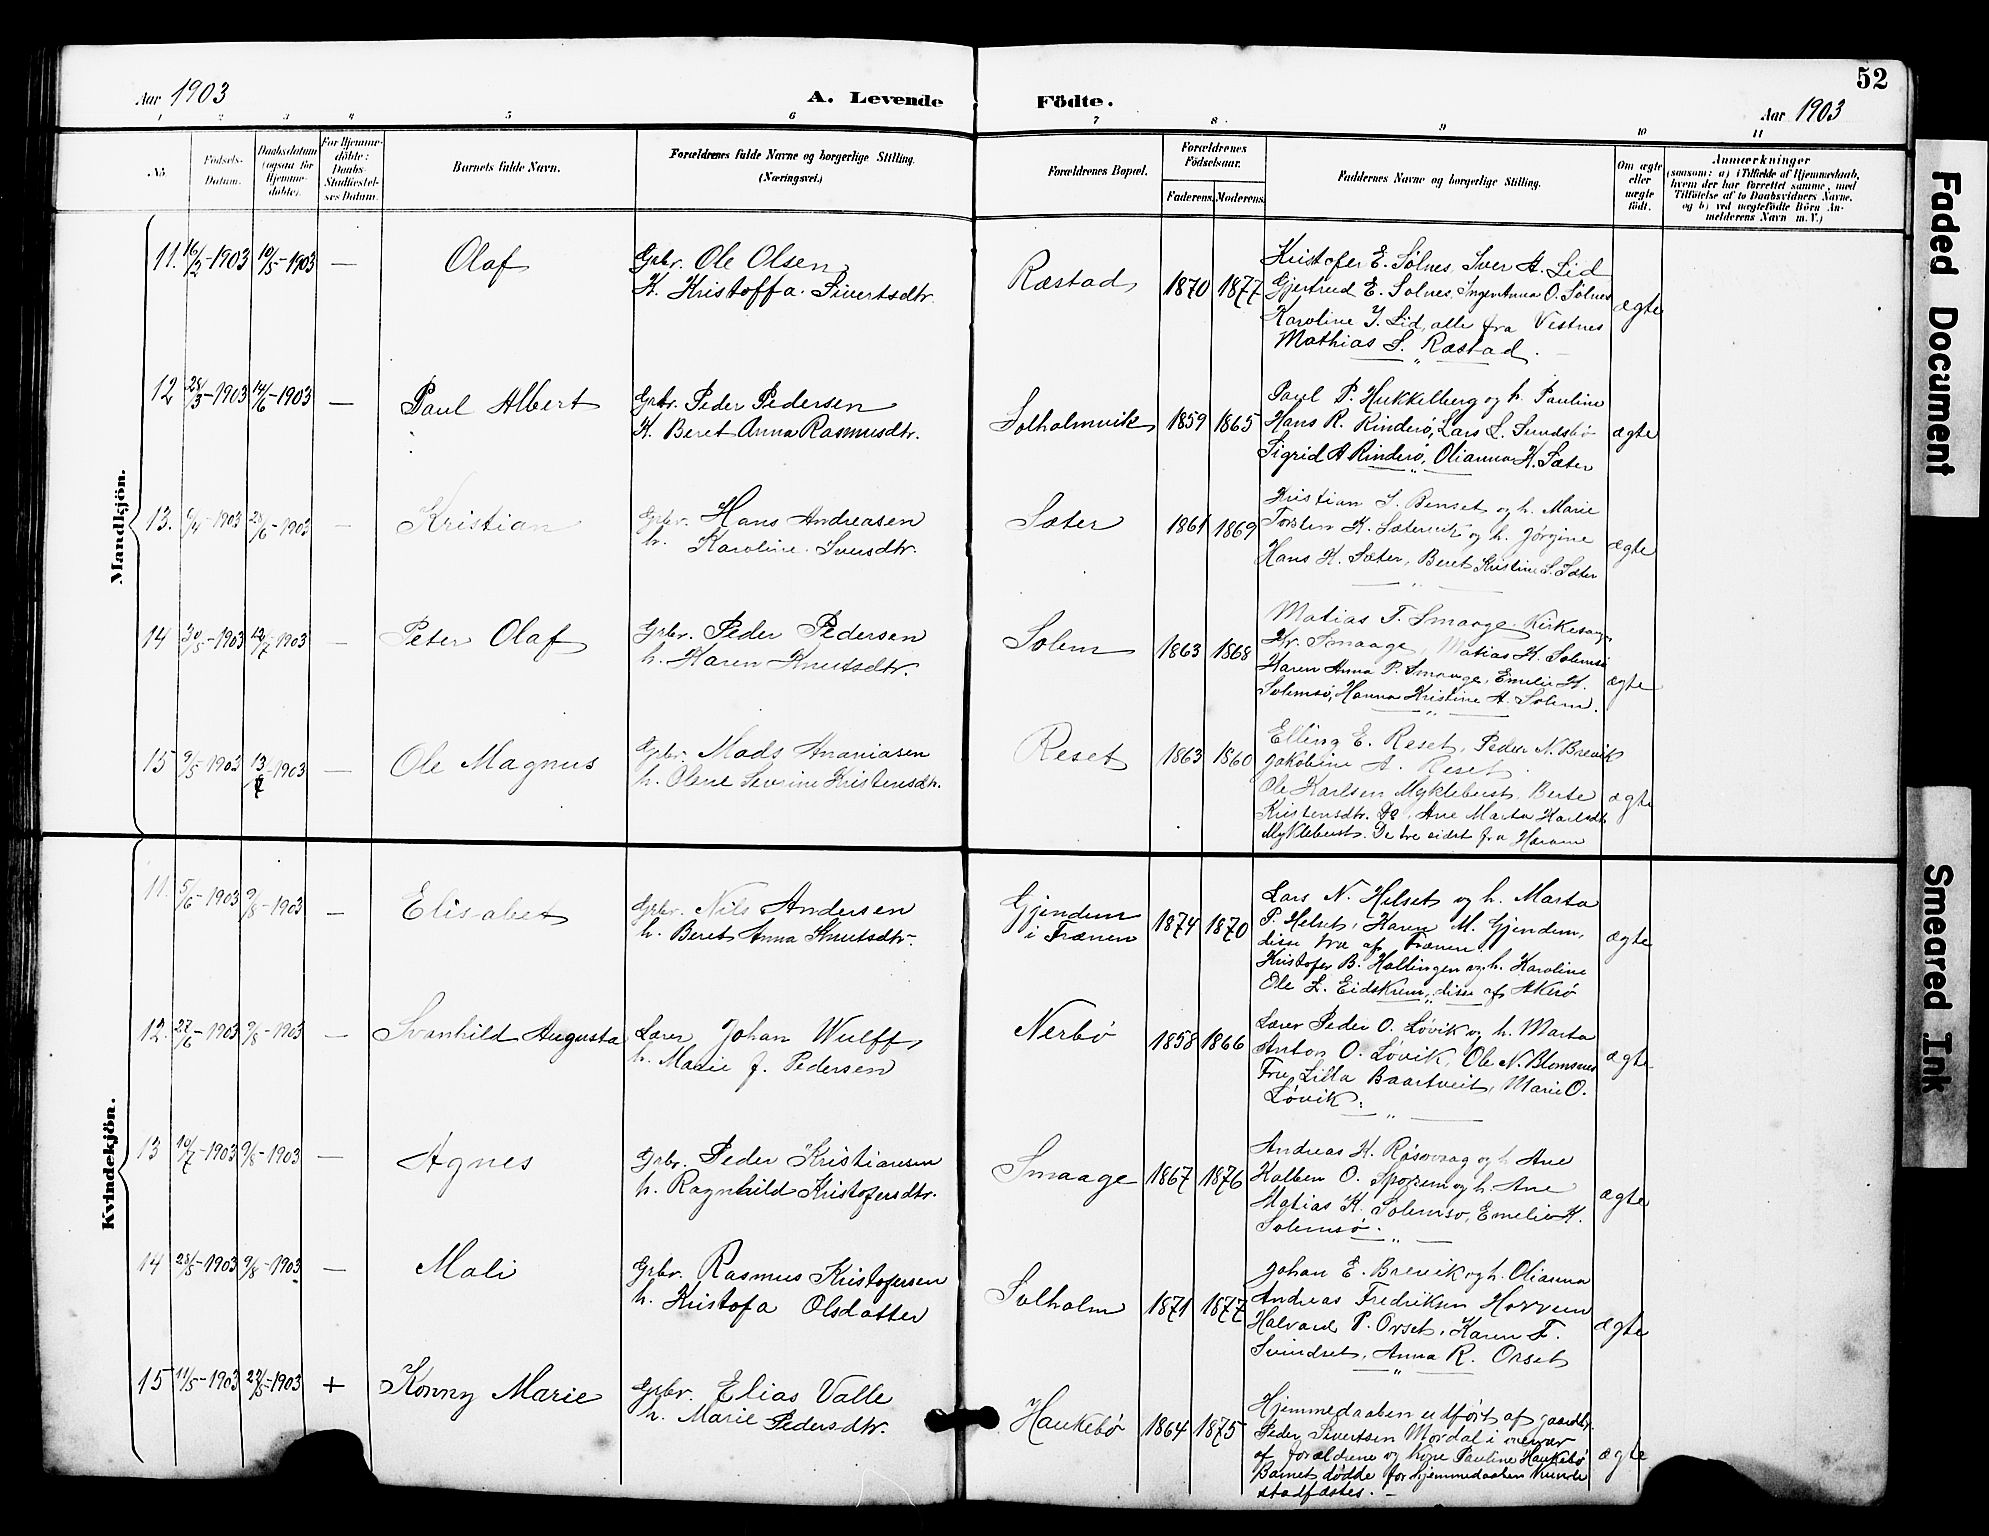 52
Aar 1903
A. Levende Födte.
Aar 1903
1 2 3 4 5 6 7 8 9 10 11
No.
Fødsels-Datum.
Daabsdatum (ogsaa for Hjemme-døbte).
For Hjemme-døbte: Daabs-Stadfæstel-ses Datum.
Barnets fulde Navn.
Forældrenes fulde Navne og borgerlige Stilling.
(Næringsvei.)
Forældrenes Bopæl.
Forældrenes Födselsaar.
Faderens. Moderens.
Faddernes Navne og borgerlige Stilling.
Om ægte eller uægte födt.
Anmærkninger
(saasom: a) i Tilfælde af Hjemmedaab, hvem der har forrettet samme, med Tilföielse af to Daabsvidners Navne, og b) ved uægtefödte Börn Anmelderens Navn m. V.)
Mandkjön.
11. 16/2-1903 10/5-1903 — Olaf
Grbr. Ole Olsen
H. Kristoffa Sivertsdtr.
Ræstad 1870 1877
Kristofer E. Sølnes, Iver A. Lid
Gjertrud E. Solnes, Inger Anna O. Sølnes
Karoline I. Lid, alle fra Vestnes
Mathias S. Ræstad.
ægte
12 28/3-1903 14/6-1903 — Paul Albert
Grbr. Peder Pedersen
H. Beret Anna Rasmusdtr.
Solholmvik 1859 1865
Paul P. Hukkelberg og h. Pauline
Hans R. Rinderø, Lars L. Sundsbø
Sigrid A Rinderø, Olianna K. Sæter
ægte
13. 6/4-1903 28/6-1903 — Kristian
Grbr. Hans Andreasen
h. Karoline Iversdtr.
Sæter 1861 1869
Kristian I. Benset og h. Marie
Torsten K. Sætervik og h. Jørgine
Hans H. Sæter, Beret Kristine I. Sæter
ægte
14 30/5-1903 12/7-1903 — Peter Olaf
Grbr. Peder Pedersen
h. Karen Knutsdtr.
Solem 1863 1868
Matias T. Smaage. Kirkesanger
Kr. Smaage, Matias K. Solemsø
Karen Anna P. Smaage, Emelie K.
Solemsø, Hanna Kristine A. Solem.
ægte
15 9/5-1903 13/7-1903 — Ole Magnus
Grbr. Mads Ananiasen
h. Olene Severine Kristensdtr.
Reset 1863 1860
Elling E. Reset, Peder N. Brevik
Jakobine A. Reset.
Ole Karlsen Myklebust, Berte
Kristensdtr. Do, Ane Marta Karlsdtr.
Myklebust. De tre sidst fra Haram
ægte
Kvindekjön.
11. 5/6-1903 9/8-1903 — Elisabet
Grbr. Nils Andersen
h. Beret Anna Knutsdtr.
Gjendem
i Frænen 1874 1870
Lars N. Helset og h. Marta
P. Helset, Karen M. Gjendem,
disse tre af Frænen.
Kristofer B. Hallingen og h. Karoline
Ole L. Eidskrem, disse af Akerø
ægte
12. 27/6-1903 9/8-1903 — Svanhild Augusta
Lærer Johan Wulff,
h. Marie J. Pedersen
Nerbø 1858 1866
Lærer Peder O. Løvik og h. Marta
Anton O. Løvik, Ole N. Blomsnes
Fru Lilla Baartveit, Marie O.
Løvik.
ægte
13 10/7-1903 9/8-1903 — Agnes
Grbr. Peder Kristiansen
h. Ragnhild Kristofersdtr.
Smaage 1867 1876
Andreas K. Røsovaag og h. Ane
Kolben O. Sporsem og h. Ane
Matias K. Solemsø, Emelie K.
Solemsø.
ægte
14 28/5-1903 9/8-1903 — Mali
Grbr. Rasmus Kristofersen
h. Kristofa Olsdatter
Solholm 1871 1877
Johan E. Brevik og h. Olianna
Andreas Fredriksen Horrem
Halvard P. Orset, Karen F.
Svindset, Anna R. Orset
ægte
15 11/5-1903 27/5-1903 + Konny Marie
Grbr. Elias Valle
h. Marie Pedersdtr.
Haukebø 1864 1875
Hjemmedaaben udført af gaardbr.
Peder Sivertsen Mordal i nærvær
af forældrene og Kone Pauline Haukebø
Barnet døde før hjemmedaaben kunde
stadfæstes. —
ægte
Faded Document
Smeared Ink